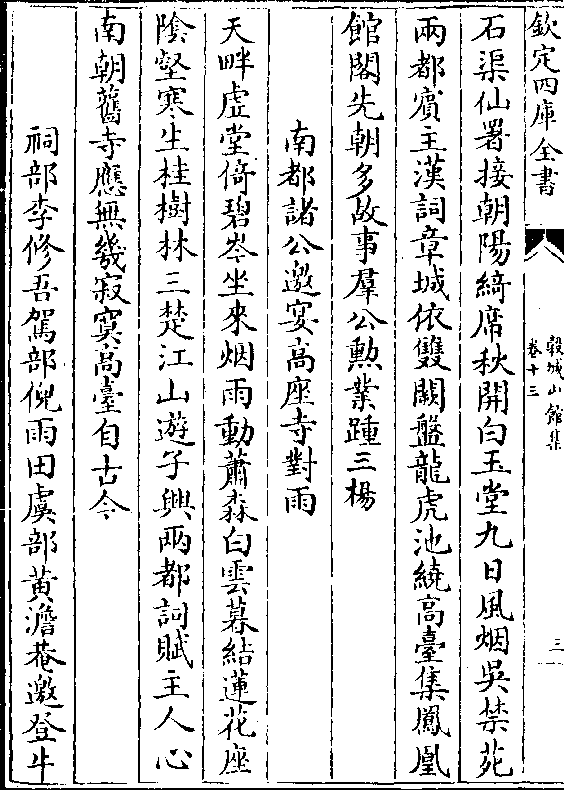 欽定四庫全書
穀城山館集
卷十三
三
石渠仙署接朝陽綺席秋開白玉堂九日風烟吳禁苑
兩都賓主漢詞章城依雙闕盤龍虎池繞高臺集鳳凰
館閣先朝多故事羣公勲業踵三楊
南都諸公邀宴高座寺對雨
天畔虚堂倚碧岑坐來烟雨動蕭森白雲暮結蓮花座
陰壑寒生桂樹林三楚江山遊子興兩都詞賦主人心
南朝舊寺應無幾寂寞高臺自古今
祠部李修吾駕部倪雨田虞部黄澹菴邀登牛